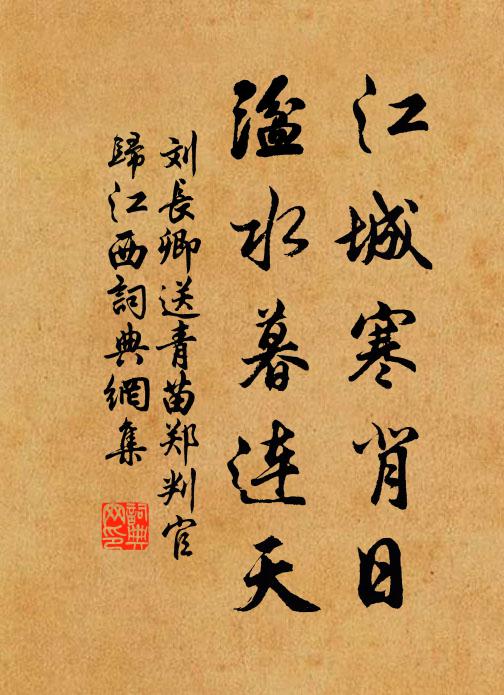 江城寒背日
湓水暮連天
刘長卿送青苗郑判官
歸江西詞典網集
詞典
网印